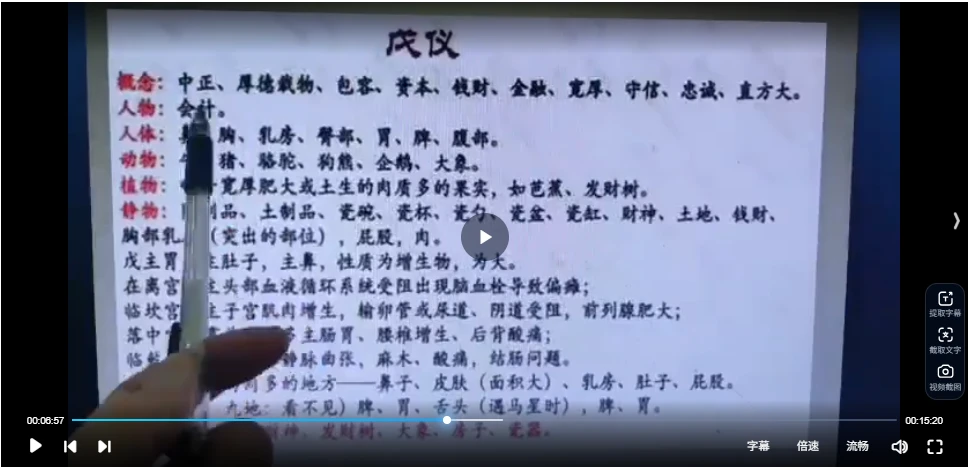 戊仪
概念：中正、厚德载物、包容、资本、钱财、金融、宽厚、守信、忠诚、直方大。
人物：会计。
人体：鼻、胸、乳房、臀部、胃、脾、腹部。
动物：猪、骆驼、狗熊、企鹅、大象。
植物：宽厚肥大或土生的肉质多的果实，如芭蕉、发财树。
静物：制品、土制品、瓷碗、瓷杯、瓷勺、瓷盆、瓷缸、财神、土地、钱财、
胸部乳（突出的部位），屁股，肉。
戊主胃，主肚子，主鼻，性质为增生物，为大。
在离宫主头部血液循环系统受阻出现脑血栓导致偏瘫；
临坎宫主子宫肌肉增生，输卵管或尿道、阴道受阻，前列腺肥大；
落中 主肠胃、腰椎增生、后背酸痛；
临 静脉曲张、麻木、酸痛，结肠问题。
肉多的地方——鼻子、皮肤（面积大）、乳房、肚子、屁股。
九地：看不见）脾、胃、舌头（遇马星时），脾、胃。
财神、发财树、大象、房子、瓷器。
提取字幕
截取文字
视频截图
00:06:57
00:15:20
字幕
倍速
流畅